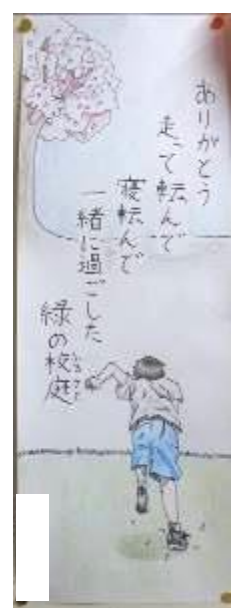 ありがとう
走って転んで
寝転んで
一緒に過ごした
緑の校庭